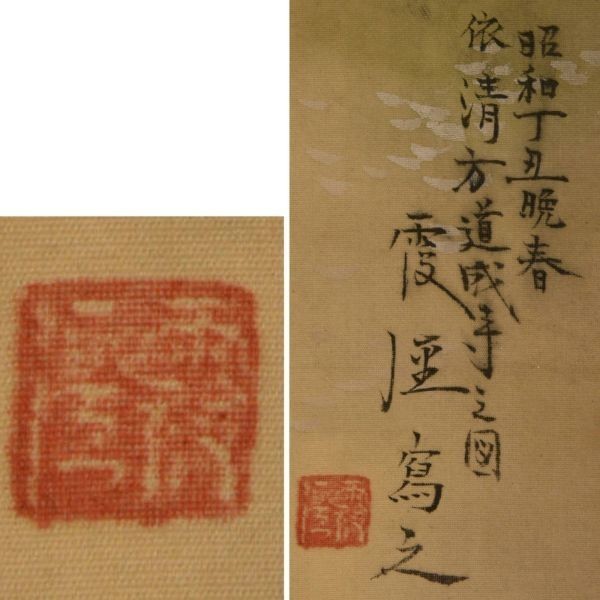 昭和丁丑晩春
依清方道成寺之図
霞涯寫之